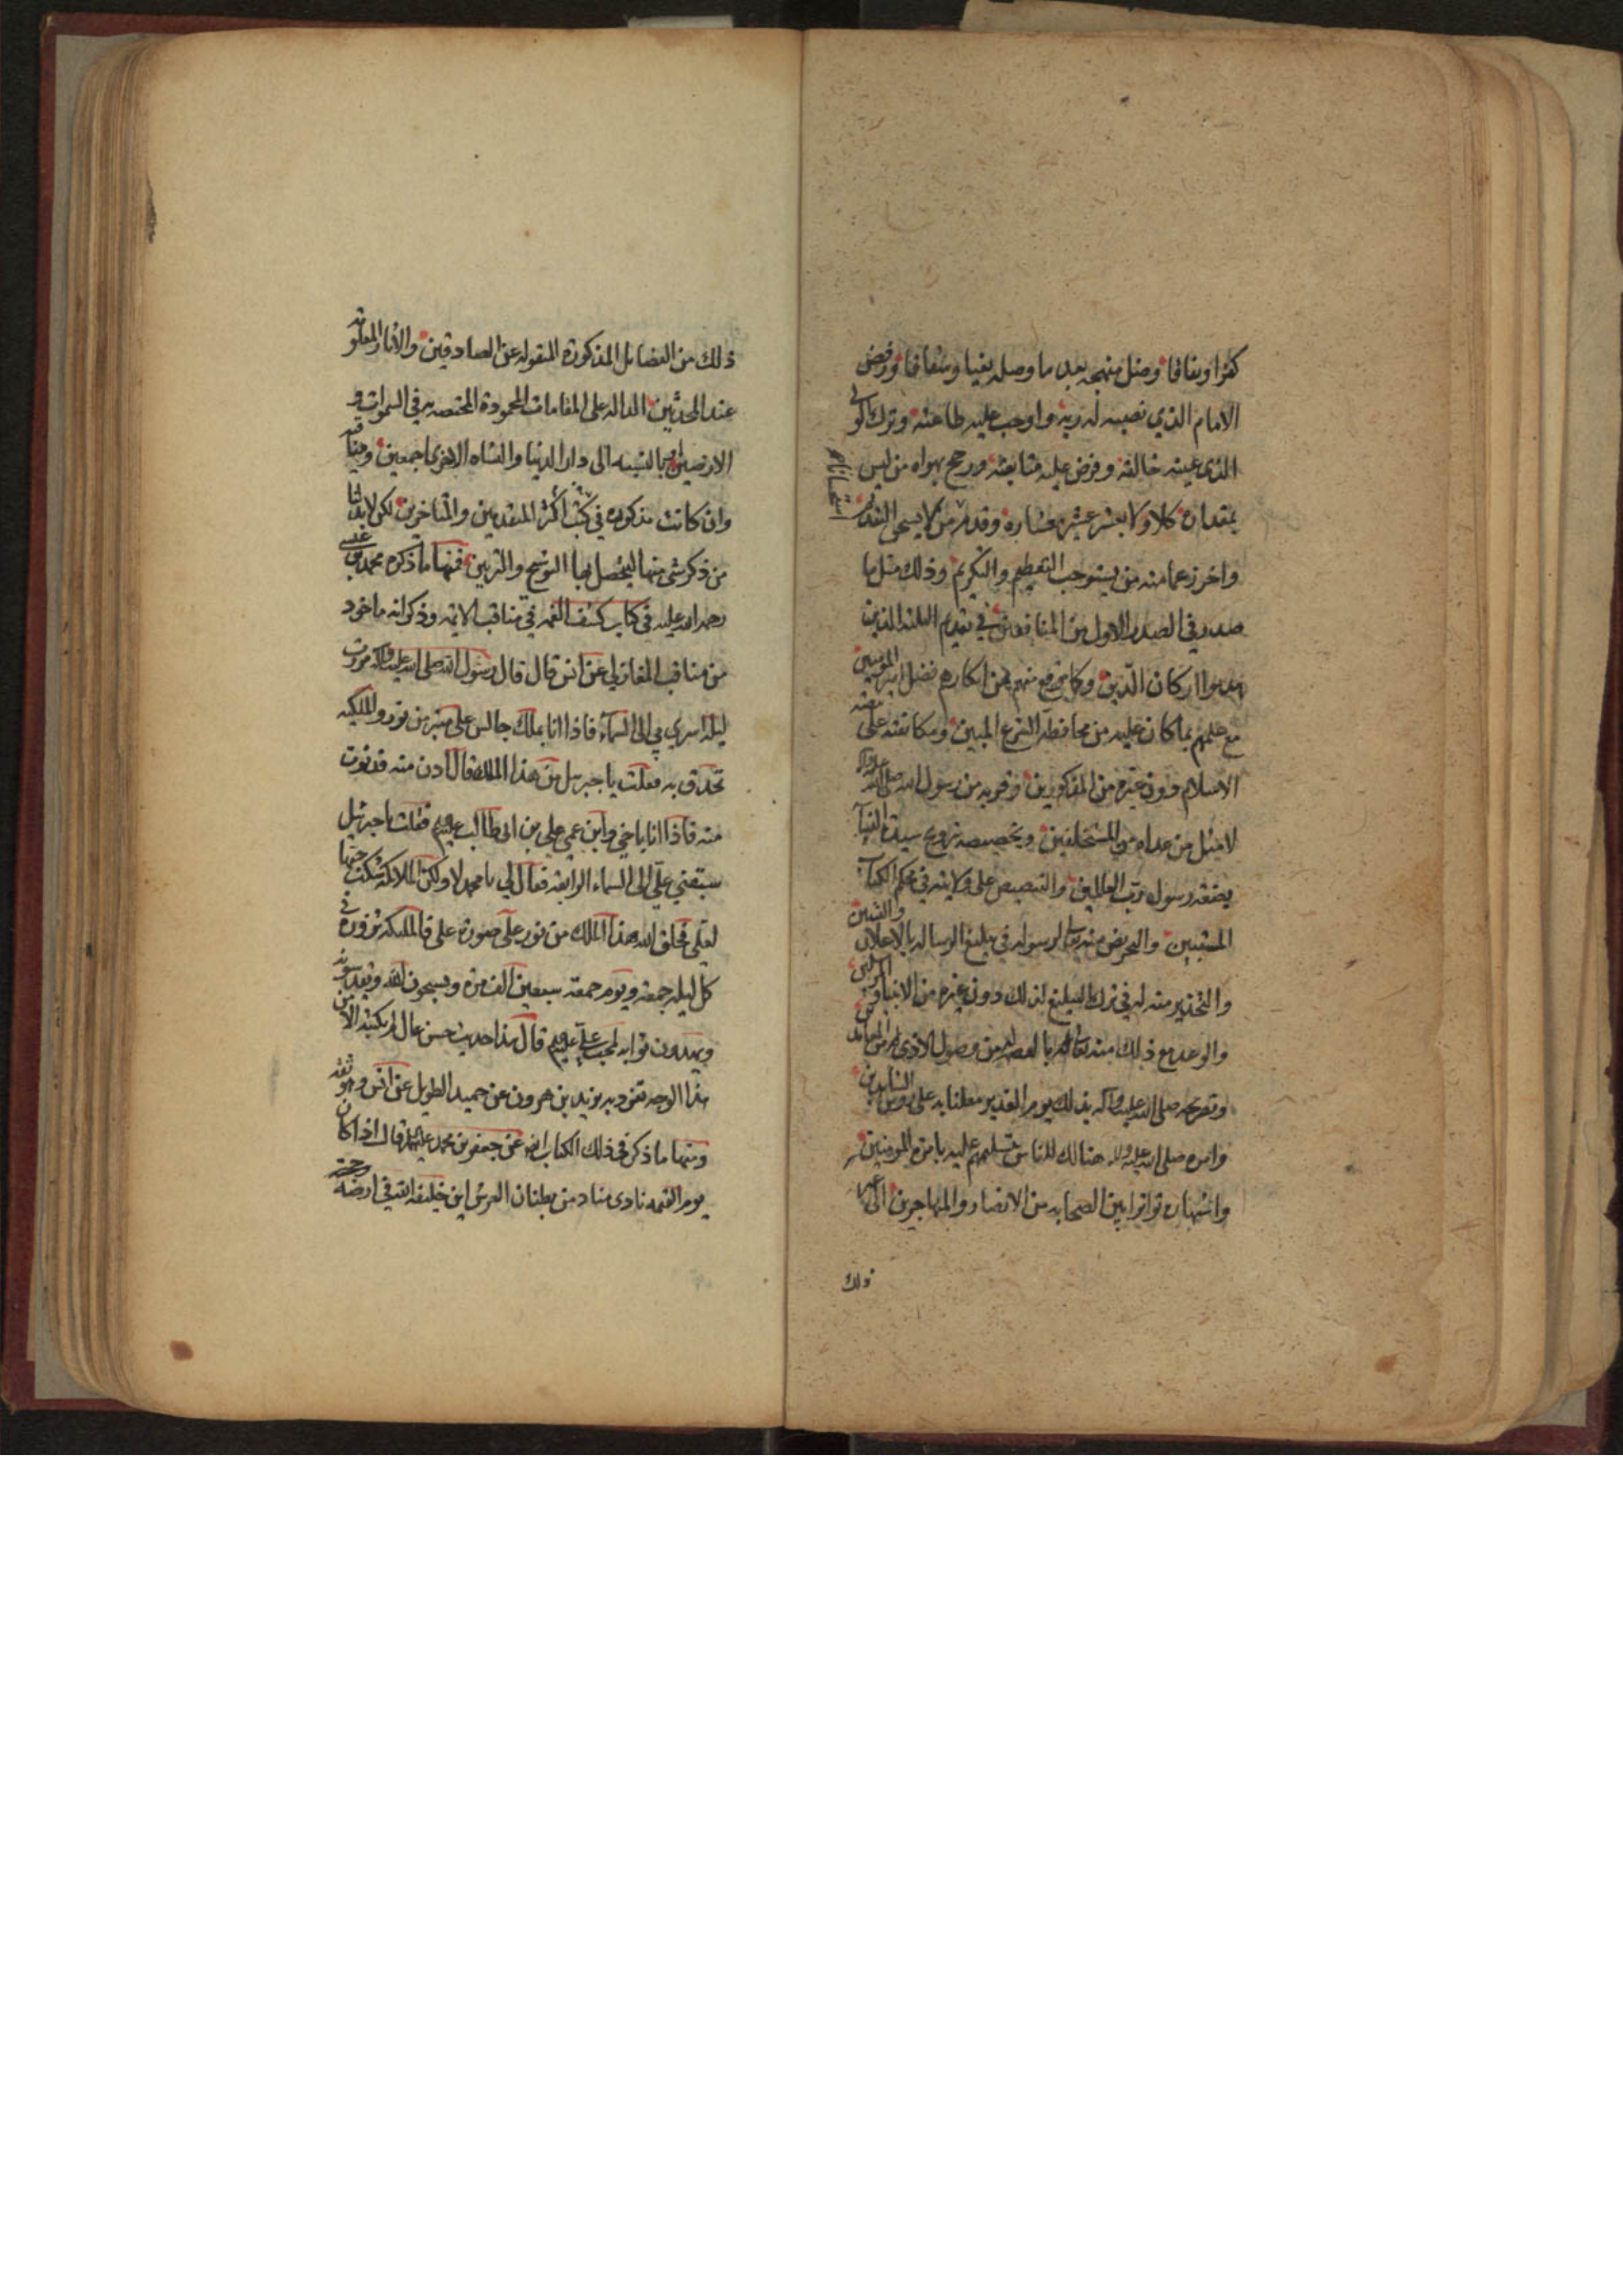 كفرا ونفاقا وضل منهجه بعد ما وصله بغيا وشقاقا ورفض
الامام الذي نصبه له ربه واوجب عليه طاعته وترك الولي
الذى عينه خالقه وفرض عليه متابعته ورجح بهواه من ليس
بمقداره كلا ولا بعشر عشر معشاره وقدم من لا يستحق التقديم
واخر زعما منه من يستوجب التعظيم والتكريم وذلك مثل ما
صدر في الصدر الاول من المنافقين في تقديم الثلثة الذين
هدموا اركان الدين وكما وقع منهم من انكارهم فضل امير المومنين
مع علمهم بما كان عليه من محافظة الشرع المبين ومكانته على
الاسلام دون غيره من المذكورين وقربه من رسول الله صلى الله عليه واله
لا مثل من عداه من المستخلفين وتخصيصه بتزويج سيدة النسآء
بضعة رسول رب العالمين والتنصيص على ولايته في محكم الكتاب
المستبين والتحريض منه تعالى لرسوله في تبليغ الرسالة بالاعلان والتبيين
والتحذير منه له في ترك التبليغ لذلك دون غيره من الانبيا والمرسلين
والوعد مع ذلك منه تعالى له بالعصمة من وصول الاذى له من المعاندين
وتصريحه صلى الله عليه وآله بذلك يوم الغدير معلنا به على رؤس الشاهدين
وامره صلى الله عليه واله هنالك للناس بتسليمهم عليه بامرة المومنين
واشتهاره تواترا بين الصحابه من الانصار والمهاجرين الى غير
ذلك
ذلك من الفضايل المذكورة المنقوله عن الصادقين والاثار المعلومة
عند المحدثين الداله على المقامات المحمودة المختصه به في السموات و
الارضين بالنسبه الى دار الدنيا والنشاه الاخرى اجمعين وهذه
وان كانت مذكوره في كتب اكثر المتقدمين والمتاخرين لكن لابد لنا
من ذكر شى منها ليحصل بها التوشيح والتزيين فمنها ما ذكره محمد بن عيسى
رحمه الله عليه في كتاب كشف الغمه في مناقب الائمه وذكر انه ماخوذ
من مناقب المغازلي عن انس قال قال رسول الله صلى الله عليه وآله مررت
ليلة اسري بي الى السماء فاذا انا بملك جالس على منبر من نور والمليكه
تحدق به فقلت يا جبريل من هذا الملك قال ادن منه فدنوت
منه فاذا انا باخي وابن عمي علي بن ابى طالب عليه السلام فقلت يا جبرئيل
سبقني علي الى السماء الرابعه فقال لي يا محمد لا ولكن الملائكة شكت حبها
لعلى فخلق الله هذا الملك من نور على صورة على فالمليكه تزوره في
كل ليلة جمعة ويوم جمعة سبعين الف مرة ويسبحون الله ويقدسونه
ويهدون ثوابه لمحب علي عليه السلام قال هذا حديث حسن عال لم نكتبه الا من
هذا الوجه تفرد به يزيد بن هرون عن حميد الطويل عن انس وهو ثقة
ومنها ما ذكر في ذلك الكتاب ايضا عن جعفر بن محمد عليهما السلام قال اذا كان
يوم القيمه نادى مناد من بطنان العرش اين خليفة الله في ارضه